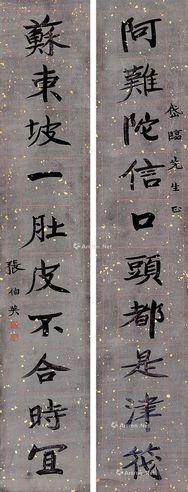 岱臨先生正
阿難陀信口頭都是津筏
蘇東坡一肚皮不合時宜
張伯英